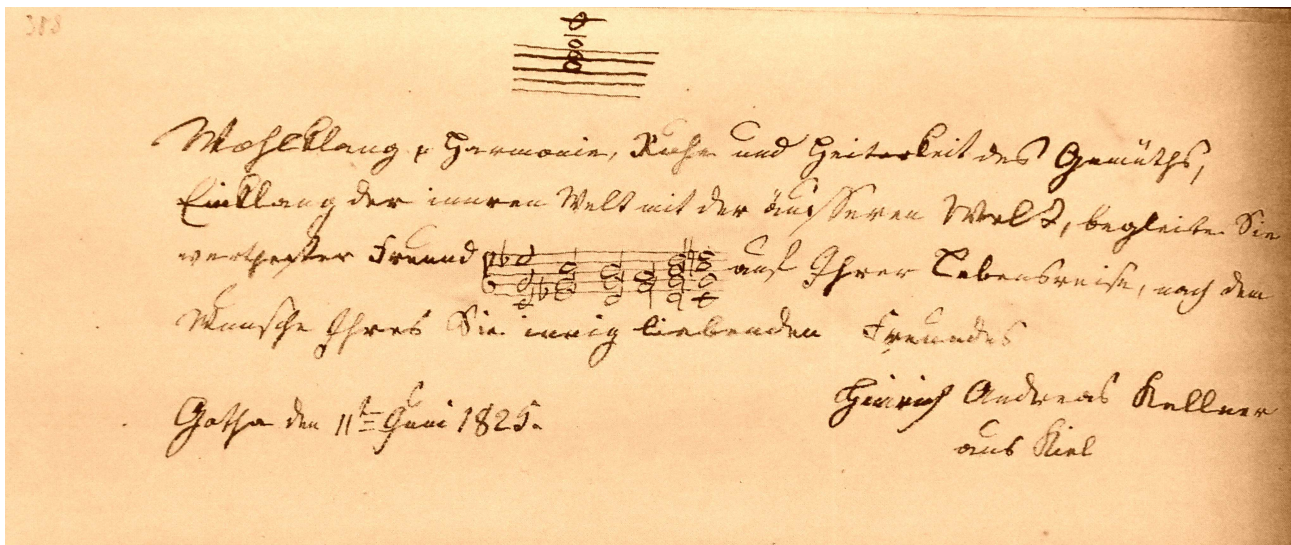 388
Wohlklang, Harmonie, Ruhe und Heiterkeit des Gemüths,
Einklang der innren Welt mit der äusseren Welt, begleite Sie
werthester Freund auf Ihrer Lebensreise, nach dem
Wunsche Ihres Sie innig liebenden Freundes
Gotha den 11ten Juni 1825.
Hinrich Andreas Kellner
aus Kiel